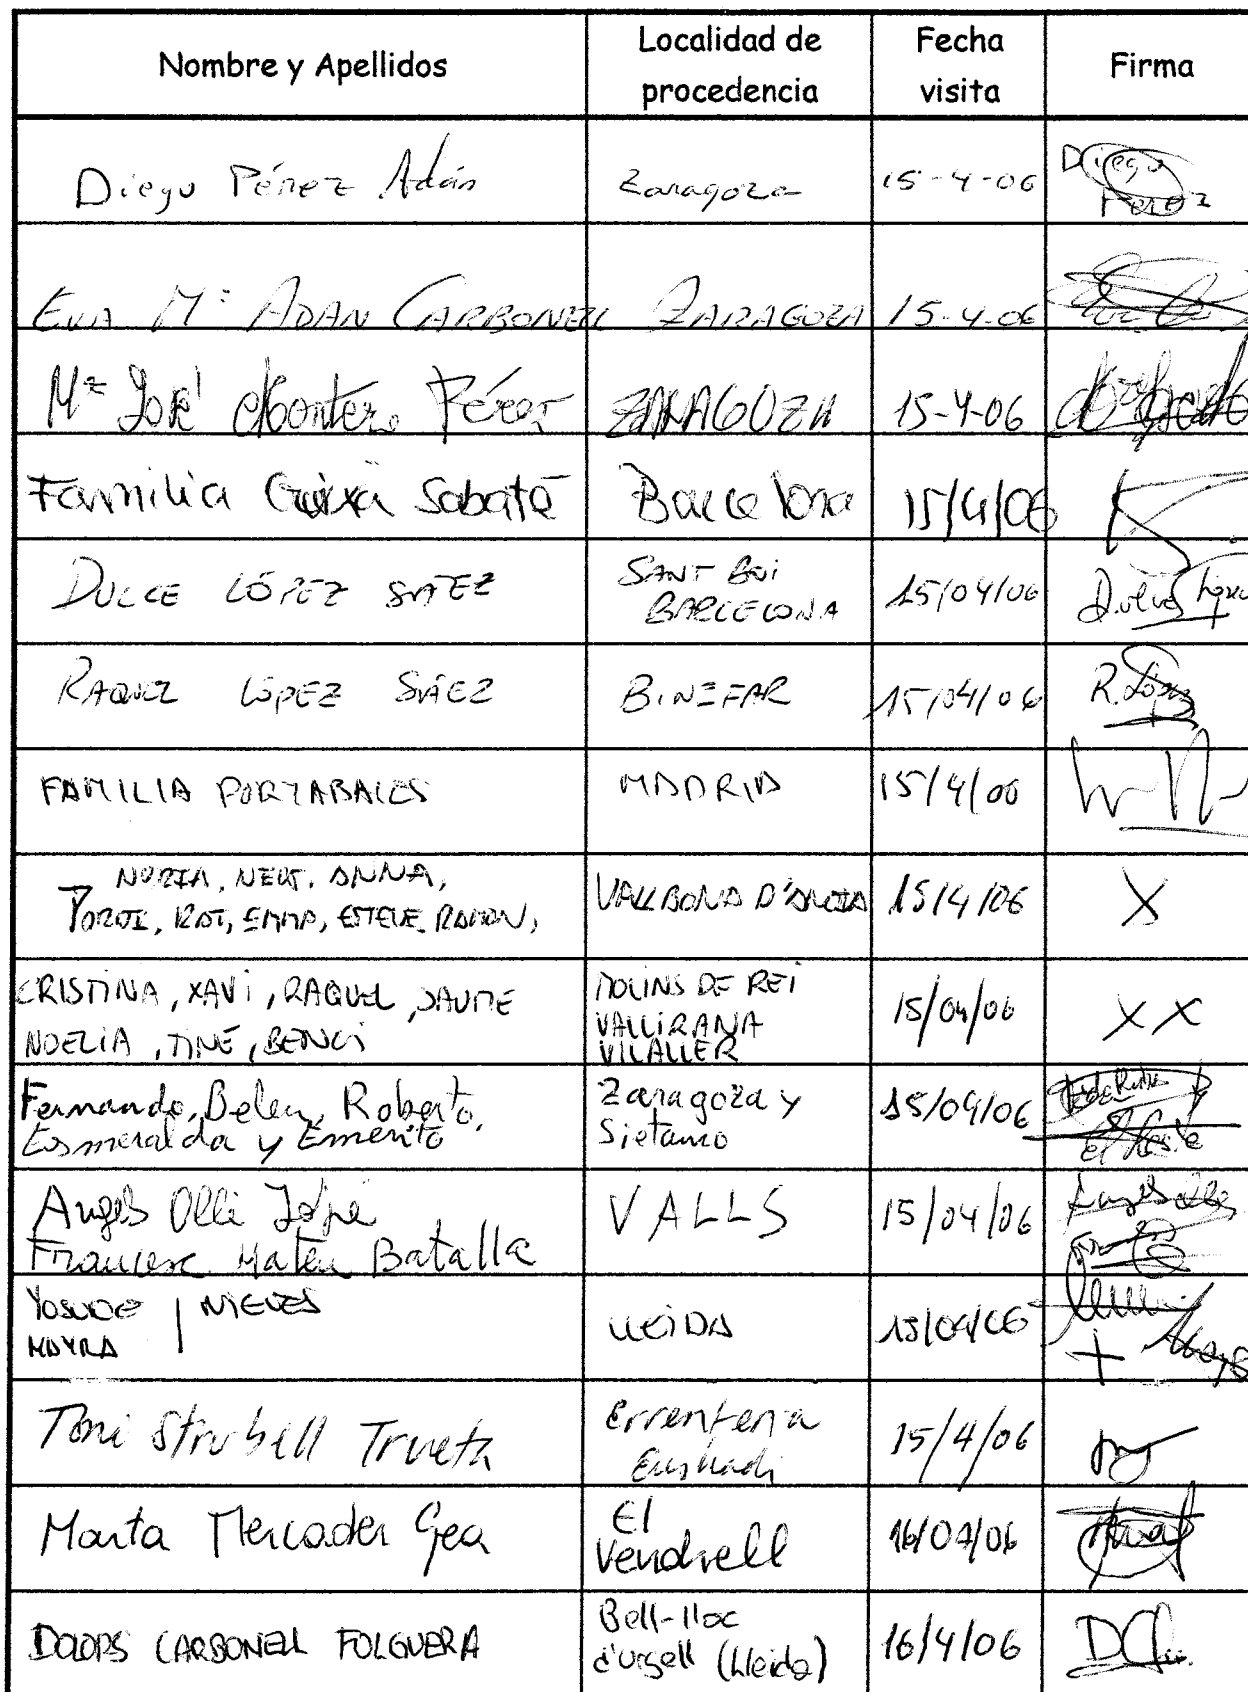 Nombre y Apellidos
Localidad de
procedencia
Fecha
visita
Firma
Diego Pérez Adán
Zaragoza
15-4-06
Diego
Pérez
EVA Mª ADAN CARBONELL
ZARAGOZA
15-4-06
Mª José Montero Pérez
ZARAGOZA
15-4-06
Familia Guixà Sabaté
Barcelona
15/4/06
DULCE LÓPEZ SÁEZ
SANT BOI
BARCELONA
15/04/06
Dulce López
RAQUEL LÓPEZ SÁEZ
BINEFAR
15/04/06
R. López
FAMILIA PORTABALES
MADRID
15/4/06
NURIA, NEUS, ANNA,
JORDI, EMMA, ESTEVE, RAMON,
VALLBONA D'ANOIA
15/4/06
X
CRISTINA, XAVI, RAQUEL, JAUME
NOELIA, TINÉ,
MOLINS DE REI
VALLIRANA
VILALLER
15/04/06
X X
Fernando, Belen, Roberto,
Esmeralda y Emerito
Zaragoza y
Sietamo
15/04/06
Angels Ollé
Francesc Mateu Batalla
VALLS
15/04/06
Angels Ollé
YOSUNE | NIEVES
MAYRA
LLEIDA
15/04/06
+
Toni Strubell Trueta
Errenteria
Euskadi
15/4/06
Marta Mercader Gea
El
Vendrell
16/04/06
DOLORS CARBONELL FOLGUERA
Bell-lloc
d'urgell (Lleida)
16/4/06